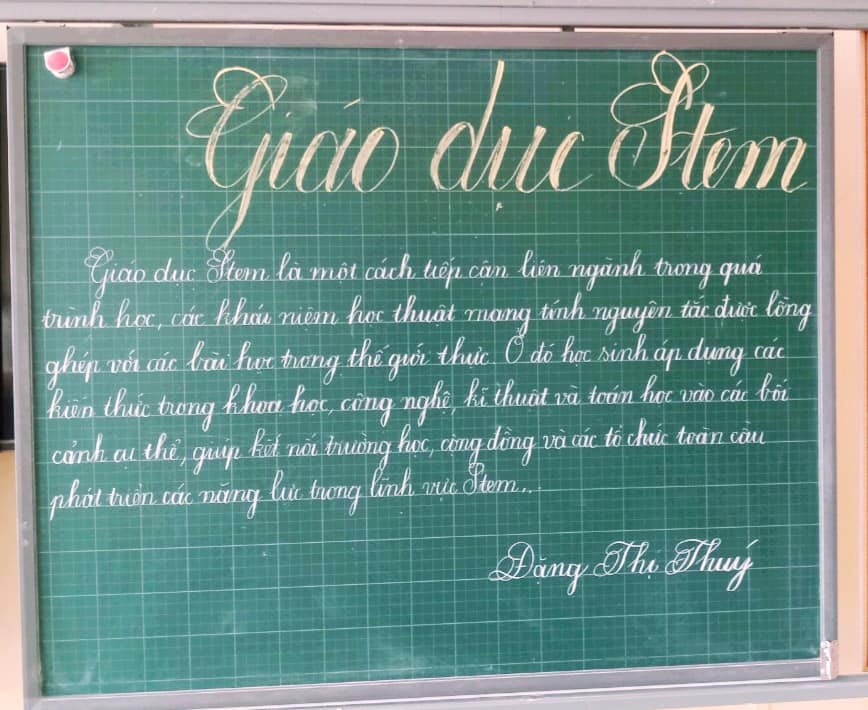 Giáo dục Stem
Giáo dục Stem là một cách tiếp cận liên ngành trong quá
trình học, các khái niệm học thuật mang tính nguyên tắc được lồng
ghép với các bài học trong thế giới thực. Ở đó học sinh áp dụng các
kiến thức trong khoa học, công nghệ, kĩ thuật và toán học vào các bối
cảnh cụ thể, giúp kết nối trường học, cộng đồng và các tổ chức toàn cầu
phát triển các năng lực trong lĩnh vực Stem...
Đặng Thị Thuý